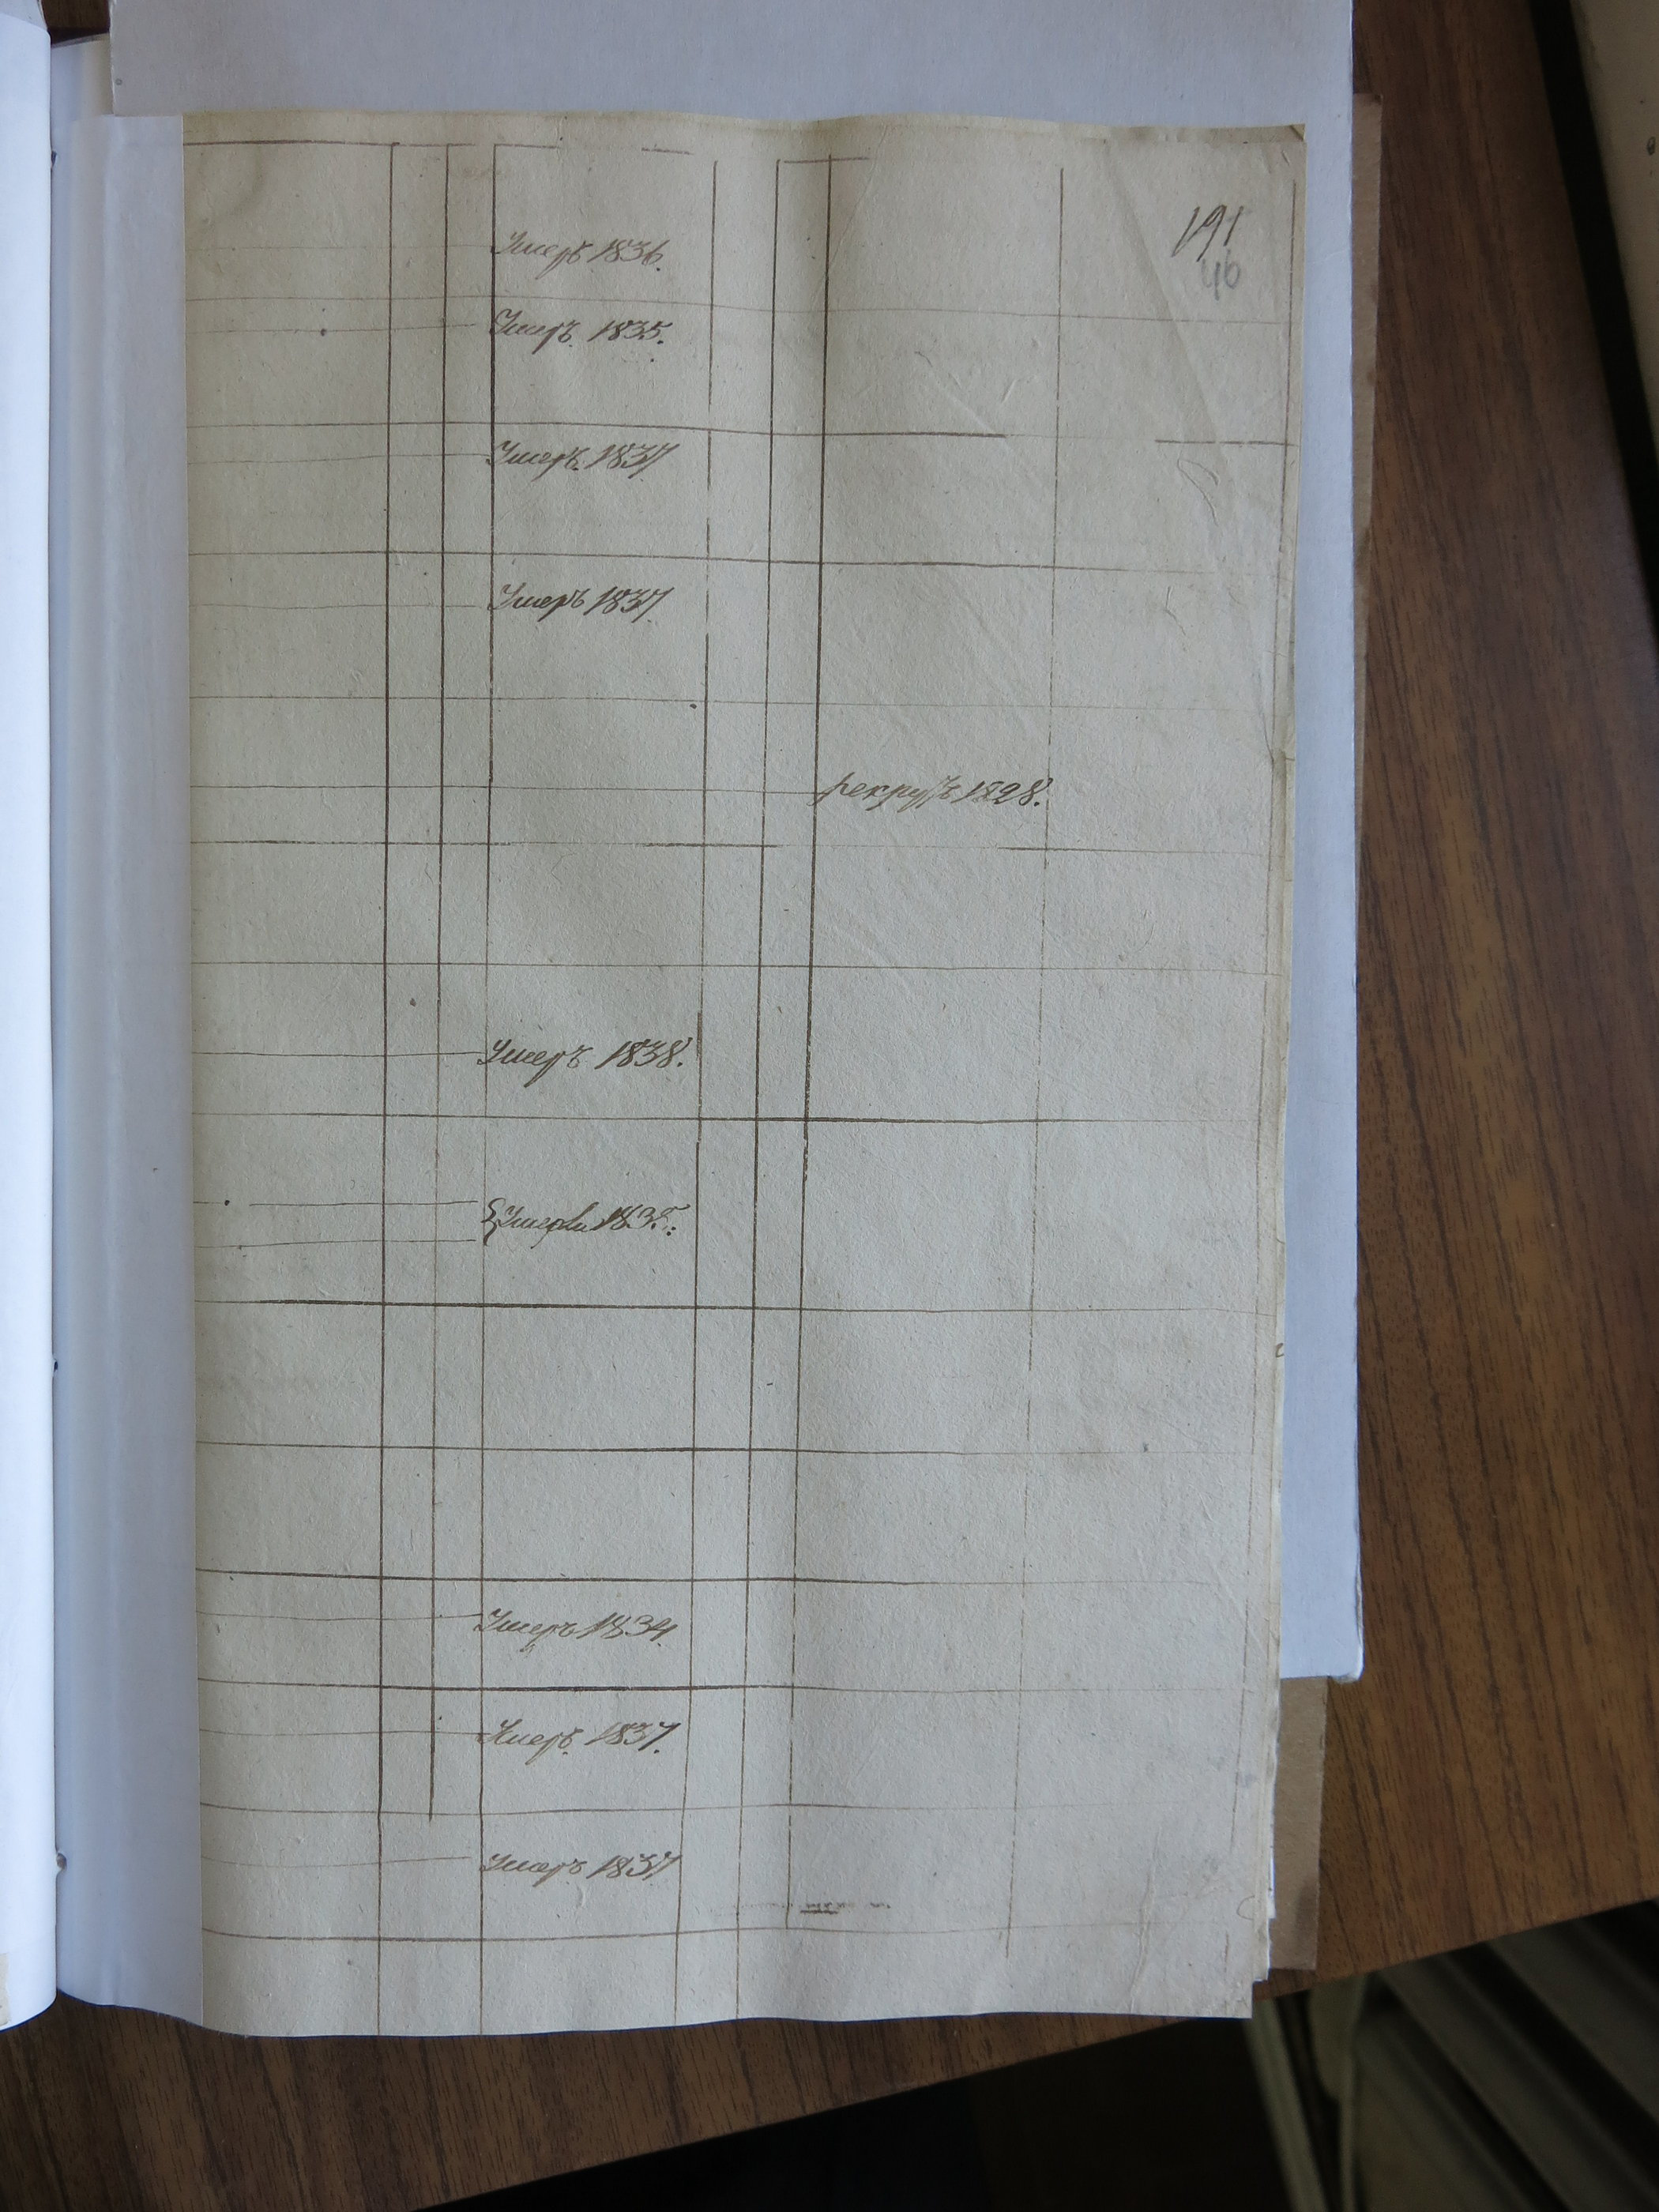 191
46
Умеръ 1836.
Умеръ. 1835.
Умеръ. 1837
Умеръ 1837.
рекрутъ 1828.
Умеръ 1838.
Умерли 1835.
Умеръ 1834
Умеръ. 1837.
Умеръ 1837